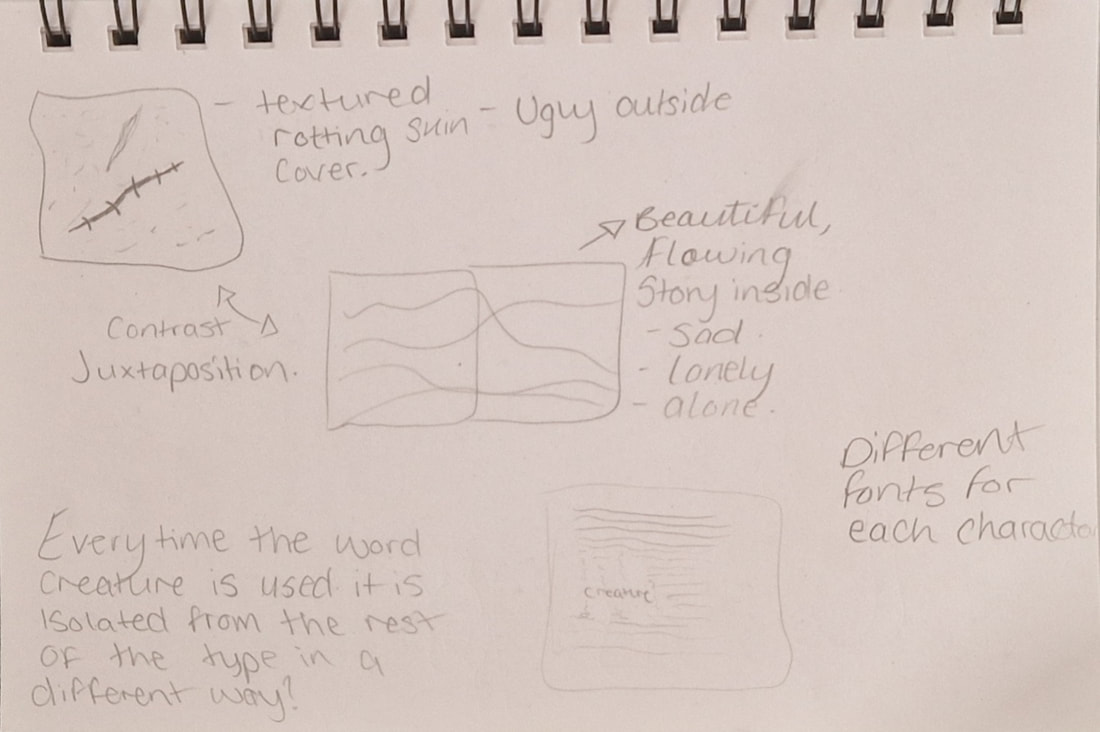 - textured
rotting skin - Ugly outside
cover.
Beautiful,
Flowing
Story inside
- Sad.
- lonely
- alone.
Contrast
Juxtaposition.
Different
fonts for
each character
Everytime the word
creature is used it is
isolated from the rest
of the type in a
different way?
creature